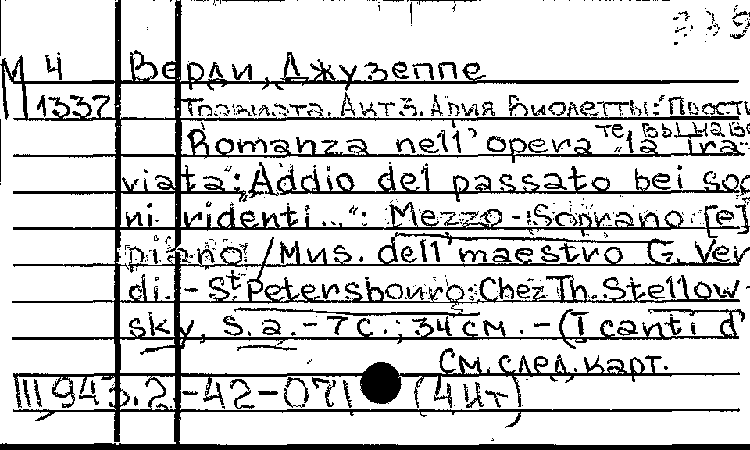 339
М 4 Верди, Джузеппе
1337 Травиата. Акт 3. Ария Виолетты: "Прости
те, вы наве
Romanza nell' opera "la Tra-
viata": „Addio del passato bei sog
ni ridenti...": Mezzo-Soprano [e]
piano / Mus. dell' maestro G. Ver
di. - St Petersbourg: Chez Th. Stellow-
sky, s.a. - 7 с.; 34 см. - (I canti d'
См. след. карт.
III 943.2-42-071 (4 Ит)